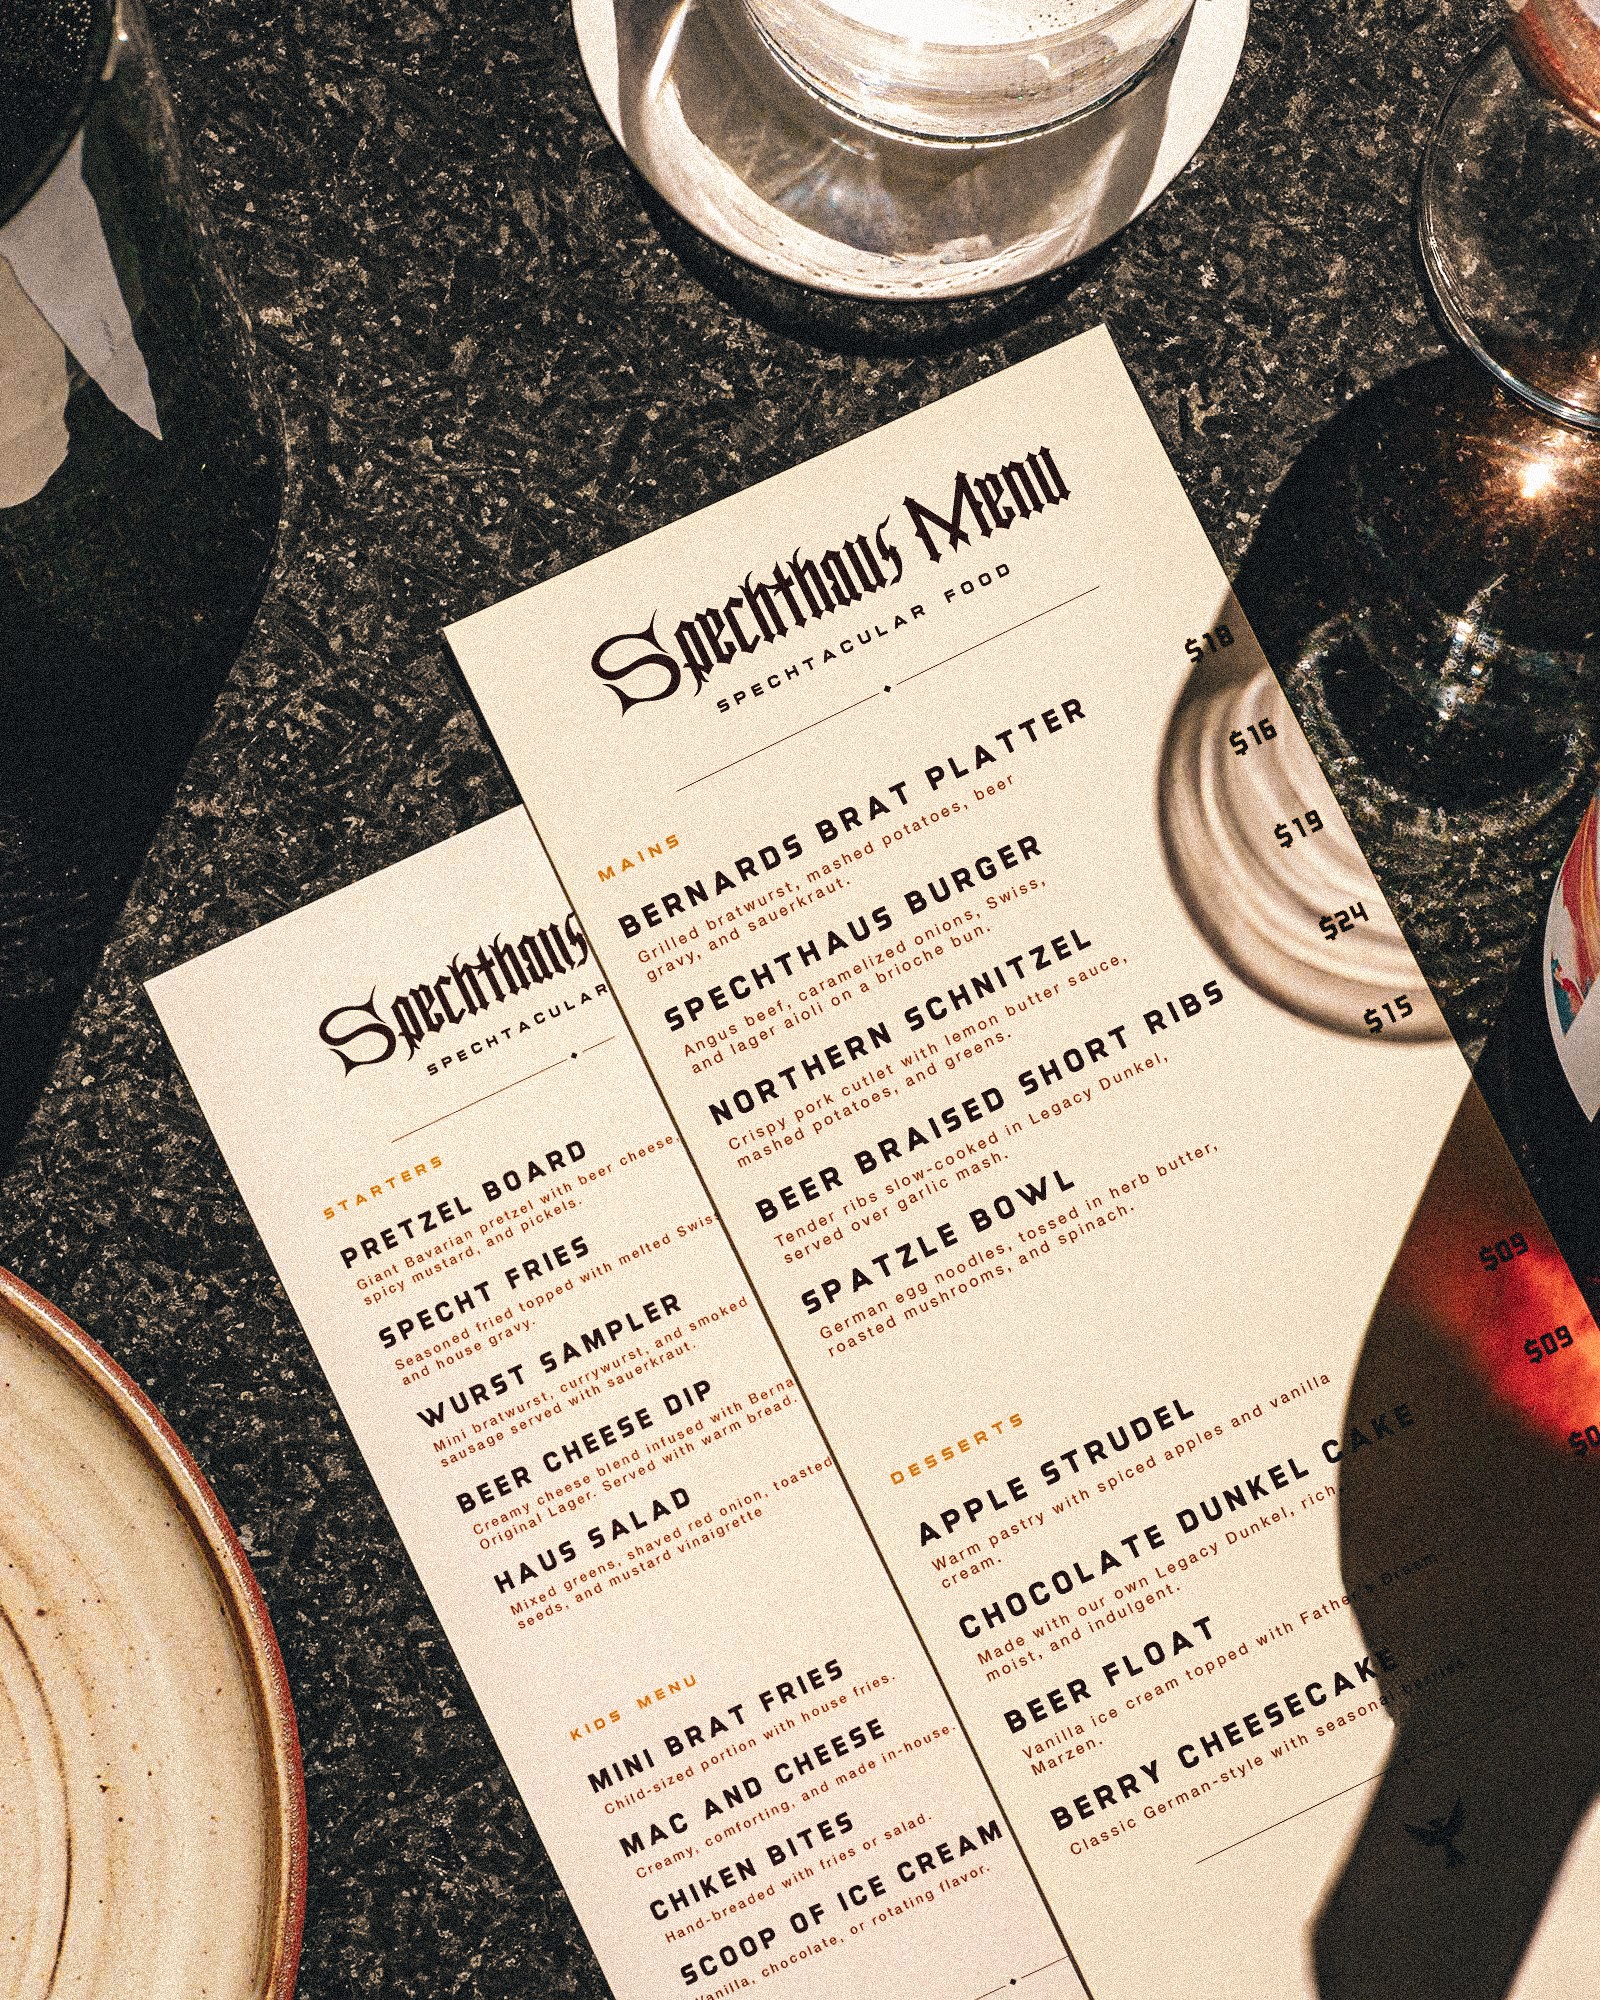 Spechthaus Menu
SPECHTACULAR FOOD
$18
$16
$19
$24
$15
MAINS
BERNARDS BRAT PLATTER
Grilled bratwurst, mashed potatoes, beer
gravy, and sauerkraut.
SPECHTHAUS BURGER
Angus beef, caramelized onions, Swiss,
and lager aioli on a brioche bun.
NORTHERN SCHNITZEL
Crispy pork cutlet with lemon butter sauce,
mashed potatoes, and greens.
BEER BRAISED SHORT RIBS
Tender ribs slow-cooked in Legacy Dunkel,
served over garlic mash.
SPATZLE BOWL
German egg noodles, tossed in herb butter,
roasted mushrooms, and spinach.
$09
$09
DESSERTS
APPLE STRUDEL
Warm pastry with spiced apples and vanilla
cream.
CHOCOLATE DUNKEL CAKE
Made with our own Legacy Dunkel, rich
moist, and indulgent.
BEER FLOAT
Vanilla ice cream topped with Father's Dream
Marzen.
BERRY CHEESECAKE
Classic German-style with seasonal
Spechthaus
SPECHTACULAR
STARTERS
PRETZEL BOARD
Giant Bavarian pretzel with beer cheese,
spicy mustard, and pickels.
SPECHT FRIES
Seasoned fried topped with melted Swiss
and house gravy.
WURST SAMPLER
Mini bratwurst, currywurst, and smoked
sausage served with sauerkraut.
BEER CHEESE DIP
Creamy cheese blend infused with Berna
Original Lager. Served with warm bread.
HAUS SALAD
Mixed greens, shaved red onion, toasted
seeds, and mustard vinaigrette
KIDS MENU
MINI BRAT FRIES
Child-sized portion with house fries.
MAC AND CHEESE
Creamy, comforting, and made in-house.
CHIKEN BITES
Hand-breaded with fries or salad.
SCOOP OF ICE CREAM
Vanilla, chocolate, or rotating flavor.